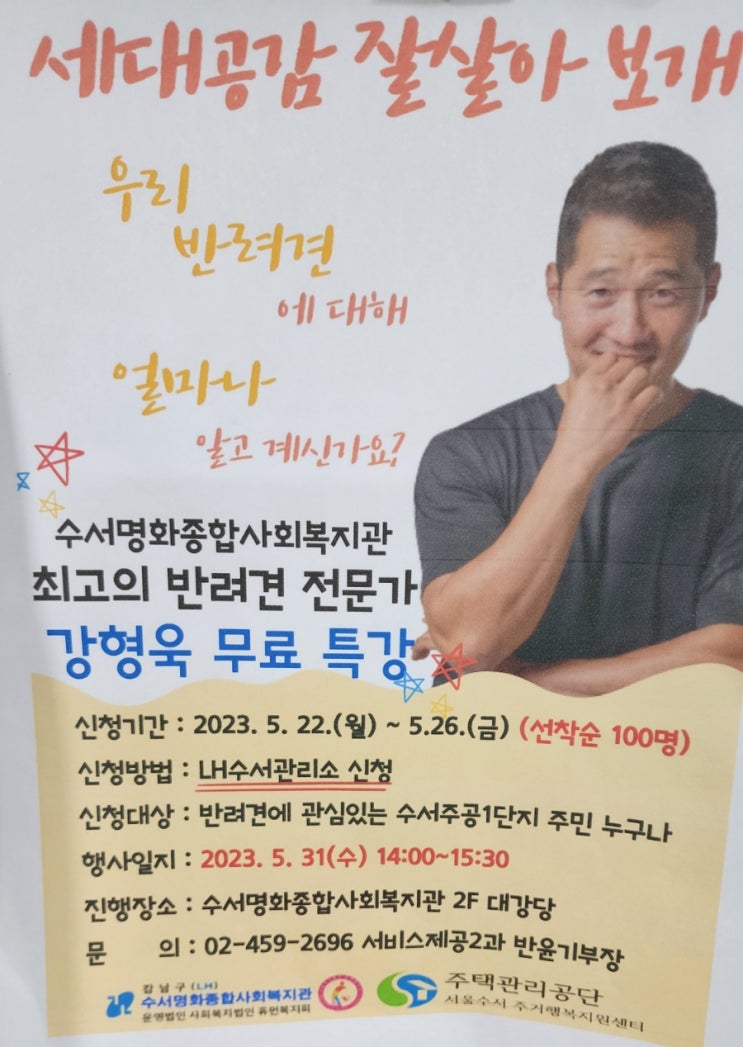 세대공감 잘살아 보개
우리
반려견
에 대해
얼마나
알고 계신가요?
수서명화종합사회복지관
최고의 반려견 전문가
강형욱 무료 특강
신청기간 : 2023. 5. 22.(월) ~ 5.26.(금) (선착순 100명)
신청방법 : LH수서관리소 신청
신청대상 : 반려견에 관심있는 수서주공1단지 주민 누구나
행사일지 : 2023. 5. 31(수) 14:00~15:30
진행장소 : 수서명화종합사회복지관 2F 대강당
문 의 : 02-459-2696 서비스제공2과 반윤기부장
강남구(LH)
수서명화종합사회복지관
운영법인 사회복지법인 휴먼복지회
주택관리공단
서울수서 주거행복지원센터